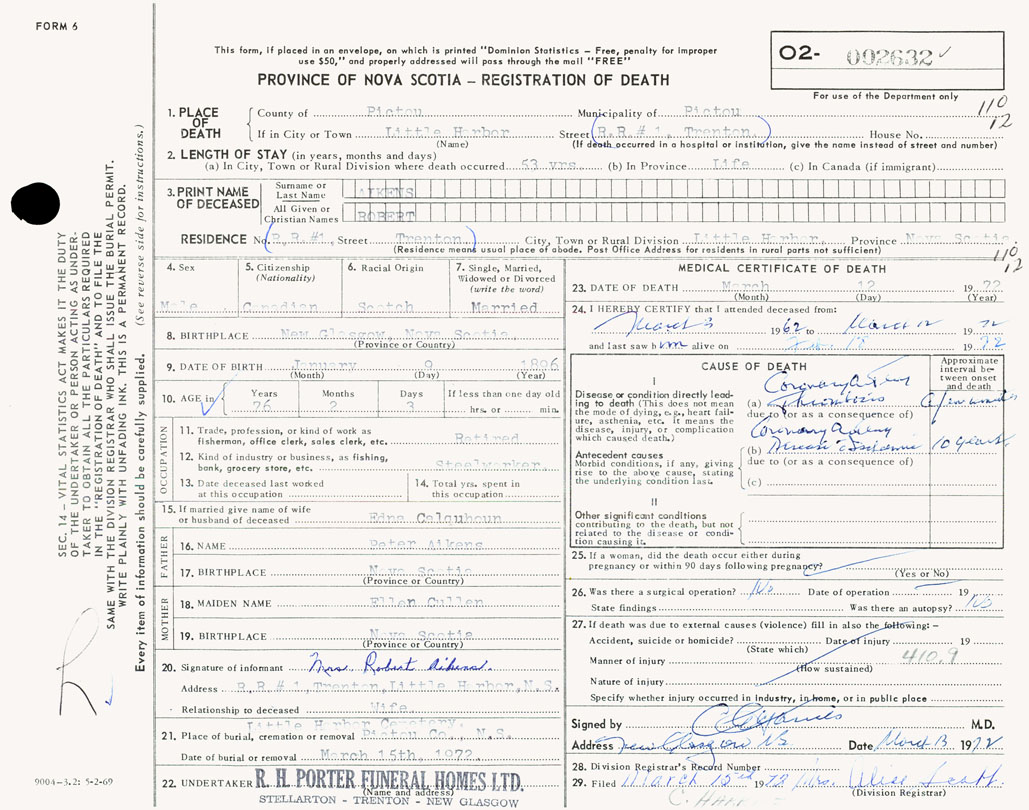 FORM 6
This form, if placed in an envelope, on which is printed "Dominion Statistics – Free, penalty for improper
use $50," and properly addressed will pass through the mail "FREE"
PROVINCE OF NOVA SCOTIA – REGISTRATION OF DEATH
O2- 002632
For use of the Department only
110
12
1. PLACE OF DEATH
County of Pictou Municipality of Pictou
If in City or Town Little Harbor Street R.R.#1, Trenton. House No.
(Name) (If death occurred in a hospital or institution, give the name instead of street and number)
2. LENGTH OF STAY (in years, months and days)
(a) In City, Town or Rural Division where death occurred 53 yrs. (b) In Province Life (c) In Canada (if immigrant)
3. PRINT NAME OF DECEASED
Surname or Last Name AIKENS
All Given or Christian Names ROBERT
RESIDENCE No. R.R.#1, Street Trenton City, Town or Rural Division Little Harbor, Province Nova Scotia
(Residence means usual place of abode. Post Office Address for residents in rural parts not sufficient)
110
12
4. Sex Male
5. Citizenship (Nationality) Canadian
6. Racial Origin Scotch
7. Single, Married, Widowed or Divorced (write the word) Married
8. BIRTHPLACE New Glasgow, Nova Scotia
(Province or Country)
9. DATE OF BIRTH January 9 1896
(Month) (Day) (Year)
10. AGE in Years Months Days If less than one day old
76 2 3 hrs. or min.
OCCUPATION
11. Trade, profession, or kind of work as
fisherman, office clerk, sales clerk, etc. Retired
12. Kind of industry or business, as fishing,
bank, grocery store, etc. Steelworker
13. Date deceased last worked
at this occupation
14. Total yrs. spent in
this occupation
15. If married give name of wife
or husband of deceased Edna Colquhoun
FATHER
16. NAME Peter Aikens
17. BIRTHPLACE Nova Scotia
(Province or Country)
MOTHER
18. MAIDEN NAME Ellen Cullen
19. BIRTHPLACE Nova Scotia
(Province or Country)
20. Signature of informant Mrs. Robert Aikens.
Address R.R.#1, Trenton, Little Harbor, N.S.
Relationship to deceased Wife
Little Harbor Cemetery,
21. Place of burial, cremation or removal Pictou Co., N.S.
Date of burial or removal March 15th, 1972
22. UNDERTAKER R. H. PORTER FUNERAL HOMES LTD.
(Name and address)
STELLARTON - TRENTON - NEW GLASGOW
MEDICAL CERTIFICATE OF DEATH
23. DATE OF DEATH March 12 1972
(Month) (Day) (Year)
24. I HEREBY CERTIFY that I attended deceased from:
March 3 1962 to March 12 1972
and last saw him alive on 1972
CAUSE OF DEATH
Approximate interval between onset and death
I
Disease or condition directly leading to death (This does not mean the mode of dying, e.g., heart failure, asthenia, etc. it means the disease, injury, or complication which caused death.)
Coronary Artery
(a) Thrombosis
due to (or as a consequence of)
Coronary Artery
(b) Disease 10 years
due to (or as a consequence of)
(c)
Antecedent causes
Morbid conditions, if any, giving
rise to the above cause, stating
the underlying condition last.
II
Other significant conditions
contributing to the death, but not
related to the disease or condition
causing it.
25. If a woman, did the death occur either during
pregnancy or within 90 days following pregnancy?
(Yes or No)
26. Was there a surgical operation? No Date of operation 19
State findings Was there an autopsy? No
27. If death was due to external causes (violence) fill in also the following: –
Accident, suicide or homicide? Date of injury 19
(State which)
Manner of injury 410.9
(How sustained)
Nature of injury
Specify whether injury occurred in Industry, in home, or in public place
Signed by M.D.
Address New Glasgow NS Date March 13 1972
28. Division Registrar's Record Number
29. Filed March 15th 1972 Mrs.
(Division Registrar)
SEC. 14 – VITAL STATISTICS ACT MAKES IT THE DUTY
OF THE UNDERTAKER OR PERSON ACTING AS UNDER-
TAKER TO OBTAIN ALL THE PARTICULARS REQUIRED
IN THE "REGISTRATION OF DEATH" AND TO FILE THE
SAME WITH THE DIVISION REGISTRAR WHO SHALL ISSUE THE BURIAL PERMIT.
WRITE PLAINLY WITH UNFADING INK. THIS IS A PERMANENT RECORD.
Every item of information should be carefully supplied. (See reverse side for instructions.)
9004-3.2: 5-2-69